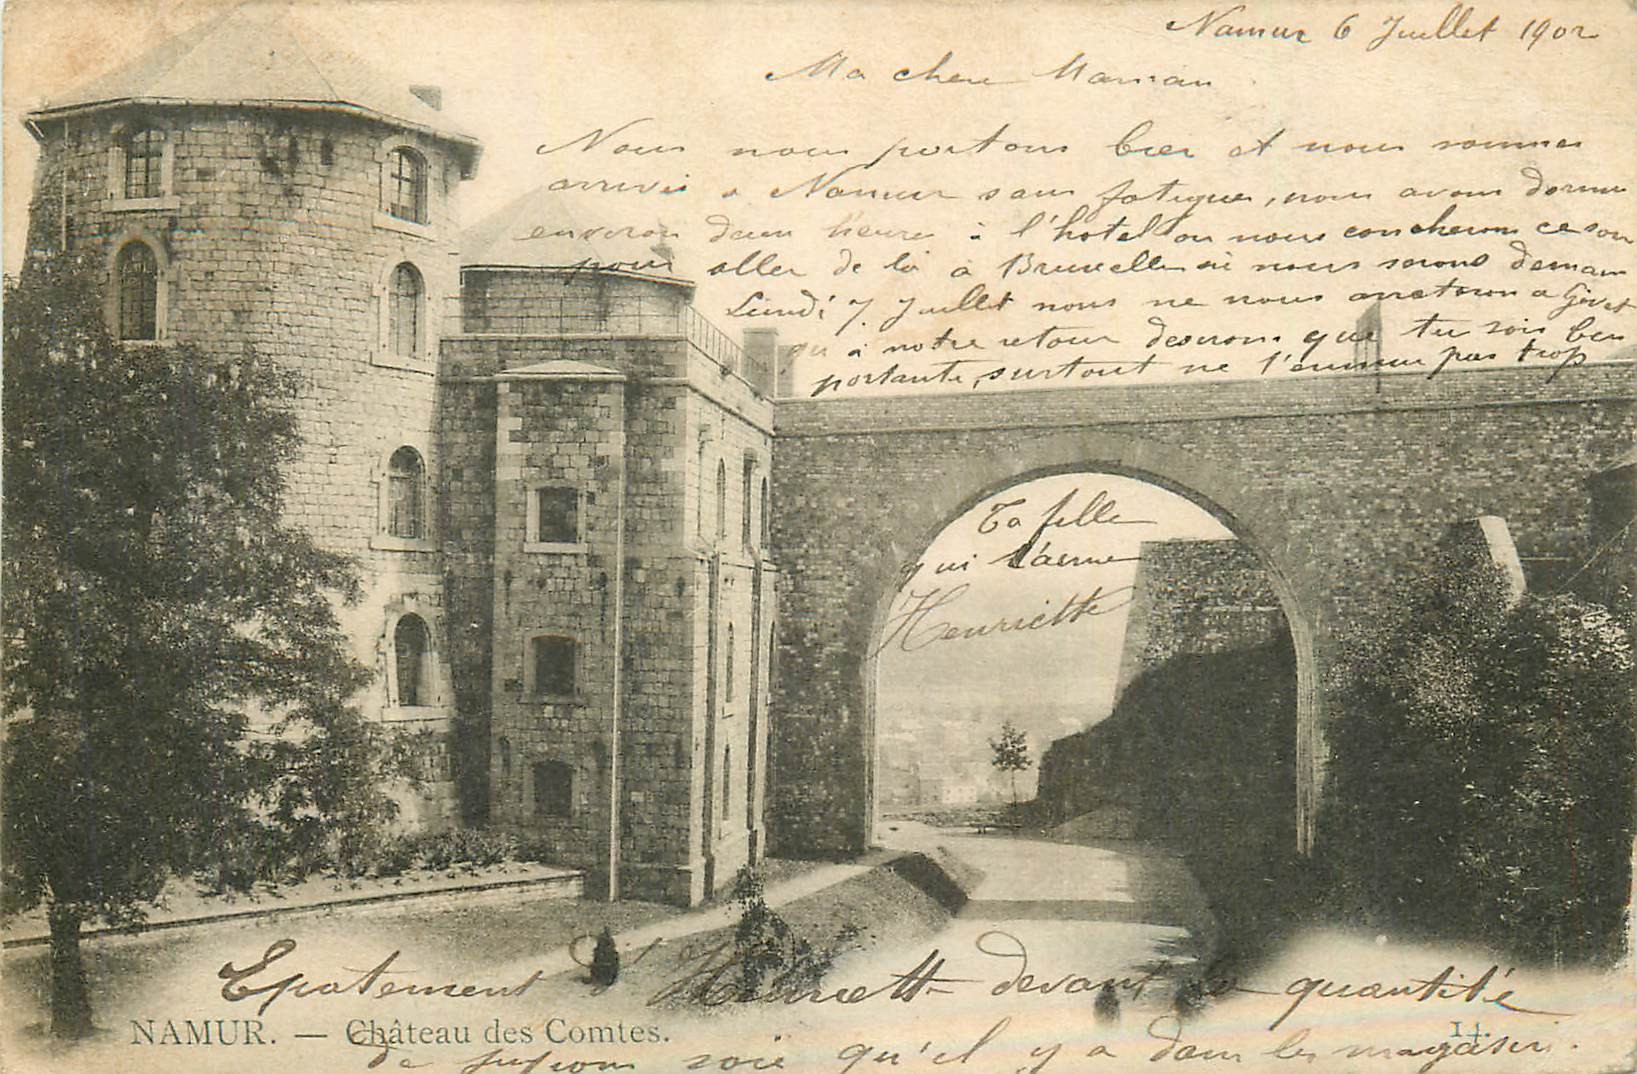 Namur 6 Juillet 1902
Ma chere Maman
Nous nous portons bien et nous sommes
arrivés a Namur sans fatigue, nous avons dormi
environ deux heures à l'hotel ou nous coucherons ce soir
pour aller de la à Bruxelles où nous serons demain
Lundi 7 Juillet nous ne nous arreterons a Givet
qu'à notre retour desirons que tu sois bien
portante, surtout ne l'ennui pas trop
Ta fille
qui t'aime
Henriette
Epatement d'Henriette devant la quantité
NAMUR. — Château des Comtes.
14.
de soie qu'il y a dans les magasins.